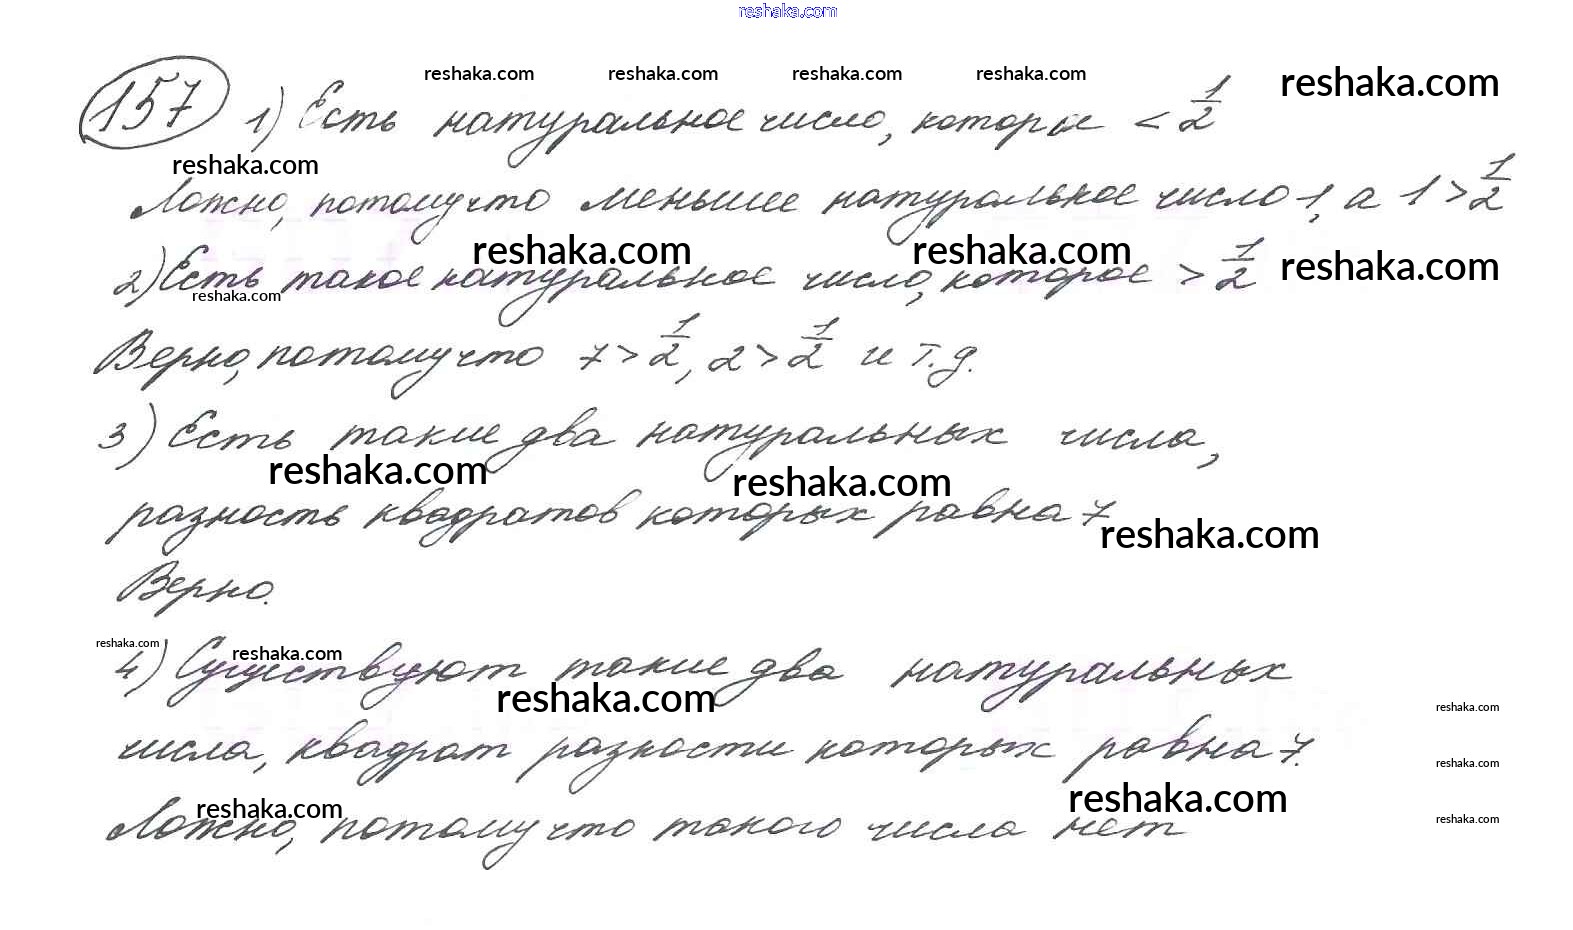 reshaka.com
reshaka.com reshaka.com reshaka.com reshaka.com reshaka.com
157 1) Есть натуральное число, которое < 1/2
reshaka.com
Ложно, потому что меньшее натуральное число 1, а 1 > 1/2
reshaka.com reshaka.com reshaka.com
2) Есть такое натуральное число, которое > 1/2
reshaka.com
Верно, потому что 7 > 1/2, 2 > 1/2 и т.д.
3) Есть такие два натуральных числа,
reshaka.com reshaka.com
разность квадратов которых равна 7
reshaka.com
Верно.
reshaka.com reshaka.com
4) Существуют такие два натуральных
reshaka.com reshaka.com
числа, квадрат разности которых равна 7.
reshaka.com
reshaka.com reshaka.com reshaka.com
Ложно, потому что такого числа нет